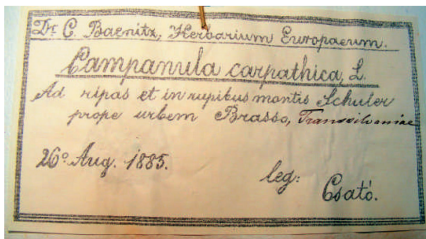 Dr. C. Baenitz, Herbarium Europaeum.
Campanula carpathica, L.
Ad ripas et in rupibus montis Schuler
prope urbem Brasso, Transsilvaniae
26o Aug. 1885.
leg:
Csató.